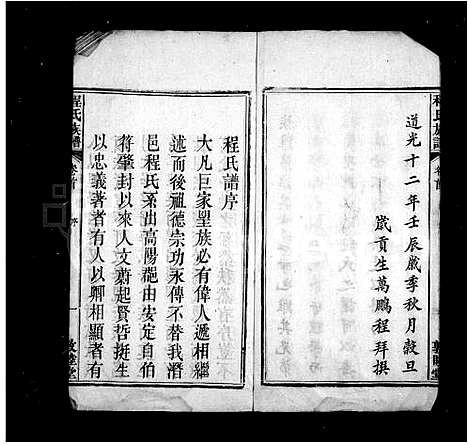 道光十二年壬辰歲季秋月穀旦
歲貢生萬鵬程拜撰
程氏族譜
卷首
敦睦堂
程氏譜序
大凡巨家望族必有偉人遞相繼
述而後祖德宗功永傳不替我潛
邑程氏系出高陽郡由安定自伯
符肇封以來人文蔚起賢哲挺生
以忠義著者有人以卿相顯者有
程氏族譜
卷首
序
一
敦睦堂